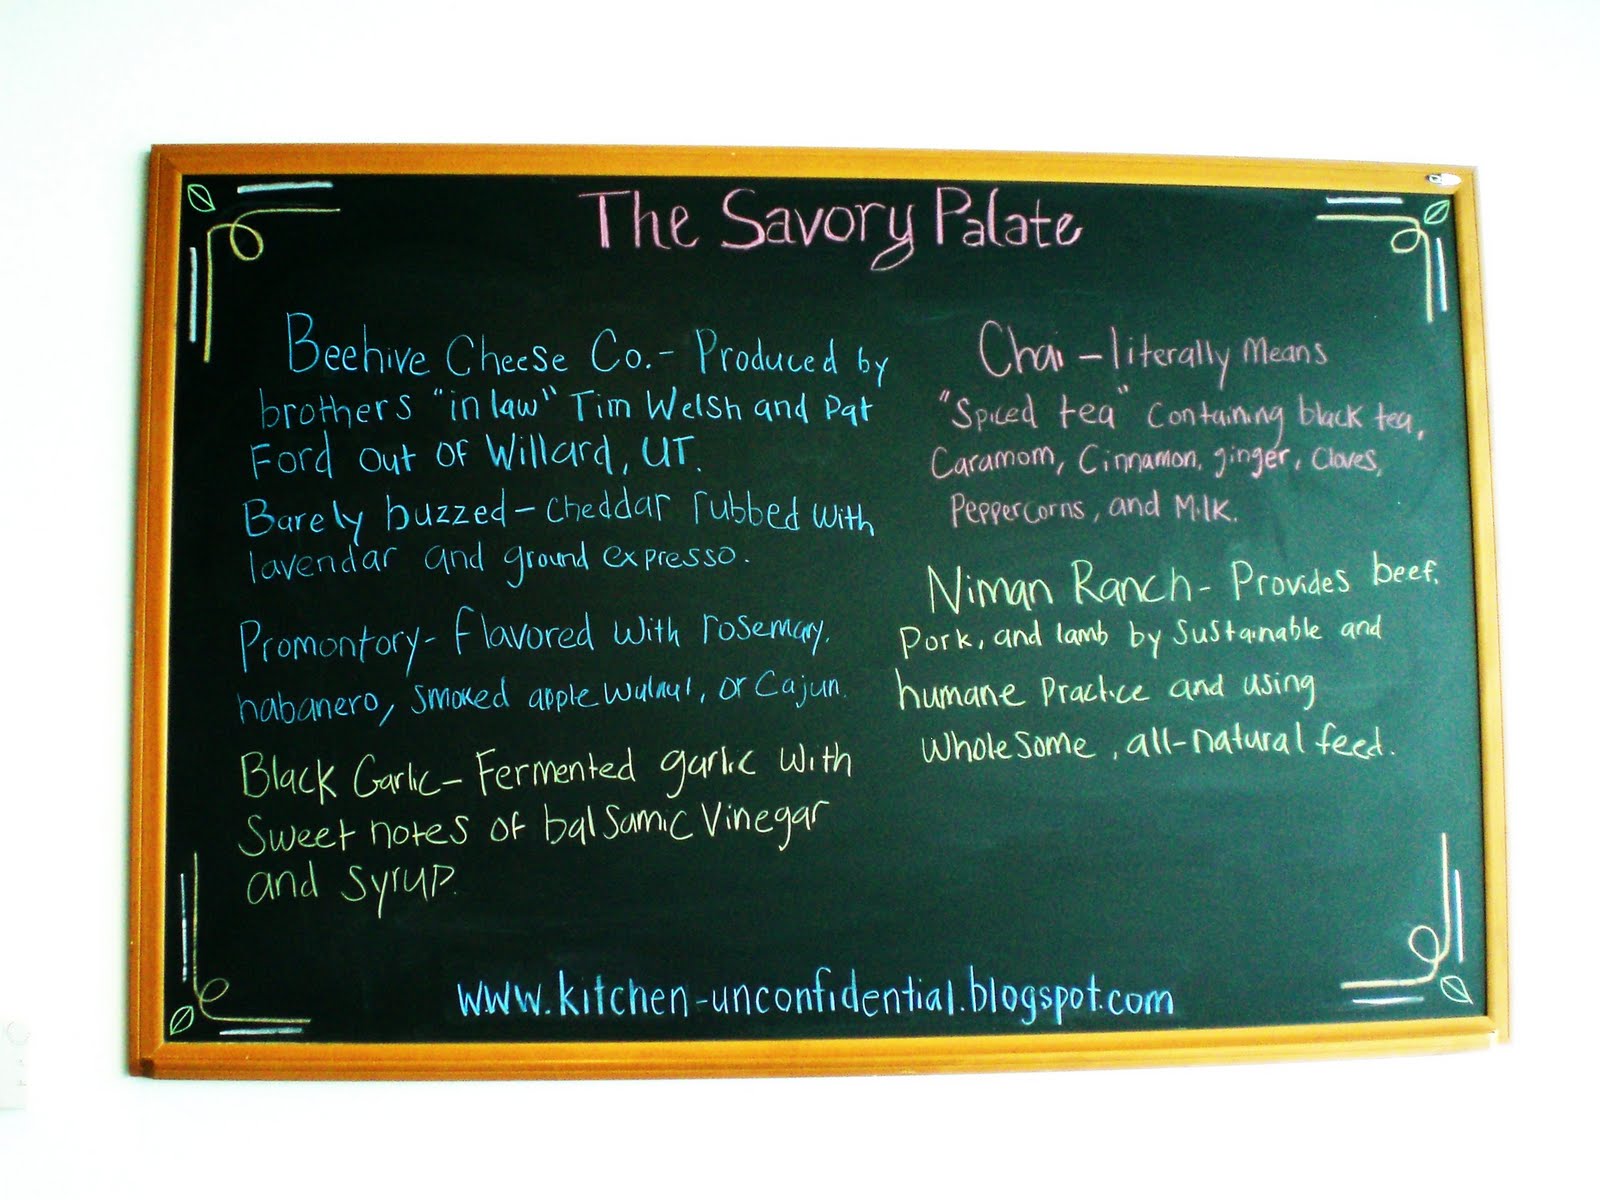 The Savory Palate
Beehive Cheese Co.- Produced by
brothers "in law" Tim Welsh and Pat
Ford out of Willard, UT.
Barely buzzed - cheddar rubbed with
lavendar and ground expresso.
Promontory- flavored with rosemary,
habanero, smoked apple walnut, or Cajun.
Black Garlic- Fermented garlic with
sweet notes of balsamic vinegar
and syrup.
Chai - literally means
"Spiced tea" containing black tea,
Caramom, Cinnamon, ginger, cloves,
Peppercorns, and Milk.
Niman Ranch- Provides beef,
pork, and lamb by sustainable and
humane practice and using
wholesome, all-natural feed.
www.kitchen-unconfidential.blogspot.com